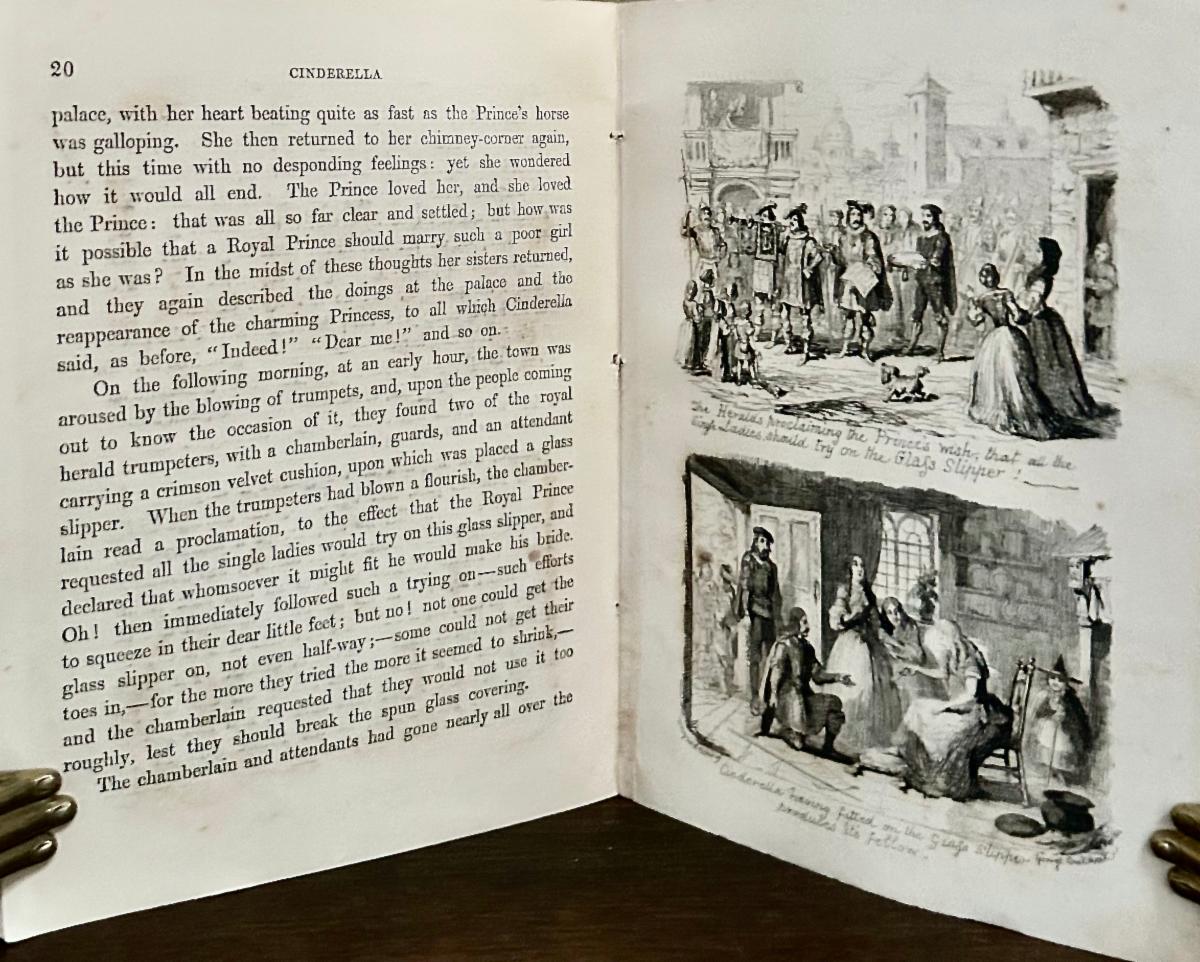 20
CINDERELLA
palace, with her heart beating quite as fast as the Prince's horse
was galloping. She then returned to her chimney-corner again,
but this time with no desponding feelings: yet she wondered
how it would all end. The Prince loved her, and she loved
the Prince: that was all so far clear and settled; but how was
it possible that a Royal Prince should marry such a poor girl
as she was? In the midst of these thoughts her sisters returned,
and they again described the doings at the palace and the
reappearance of the charming Princess, to all which Cinderella
said, as before, "Indeed!" "Dear me!" and so on.
On the following morning, at an early hour, the town was
aroused by the blowing of trumpets, and, upon the people coming
out to know the occasion of it, they found two of the royal
herald trumpeters, with a chamberlain, guards, and an attendant
carrying a crimson velvet cushion, upon which was placed a glass
slipper. When the trumpeters had blown a flourish, the chamber-
lain read a proclamation, to the effect that the Royal Prince
requested all the single ladies would try on this glass slipper, and
declared that whomsoever it might fit he would make his bride.
Oh! then immediately followed such a trying on—such efforts
to squeeze in their dear little feet; but no! not one could get the
glass slipper on, not even half-way;—some could not get their
toes in,—for the more they tried the more it seemed to shrink,—
and the chamberlain requested that they would not use it too
roughly, lest they should break the spun glass covering.
The chamberlain and attendants had gone nearly all over the
The Heralds proclaiming the Prince's wish, that all the
Ladies, should try on the Glass Slipper!
Cinderella having fitted on the Glass Slipper
produces its fellow.
George Cruikshank